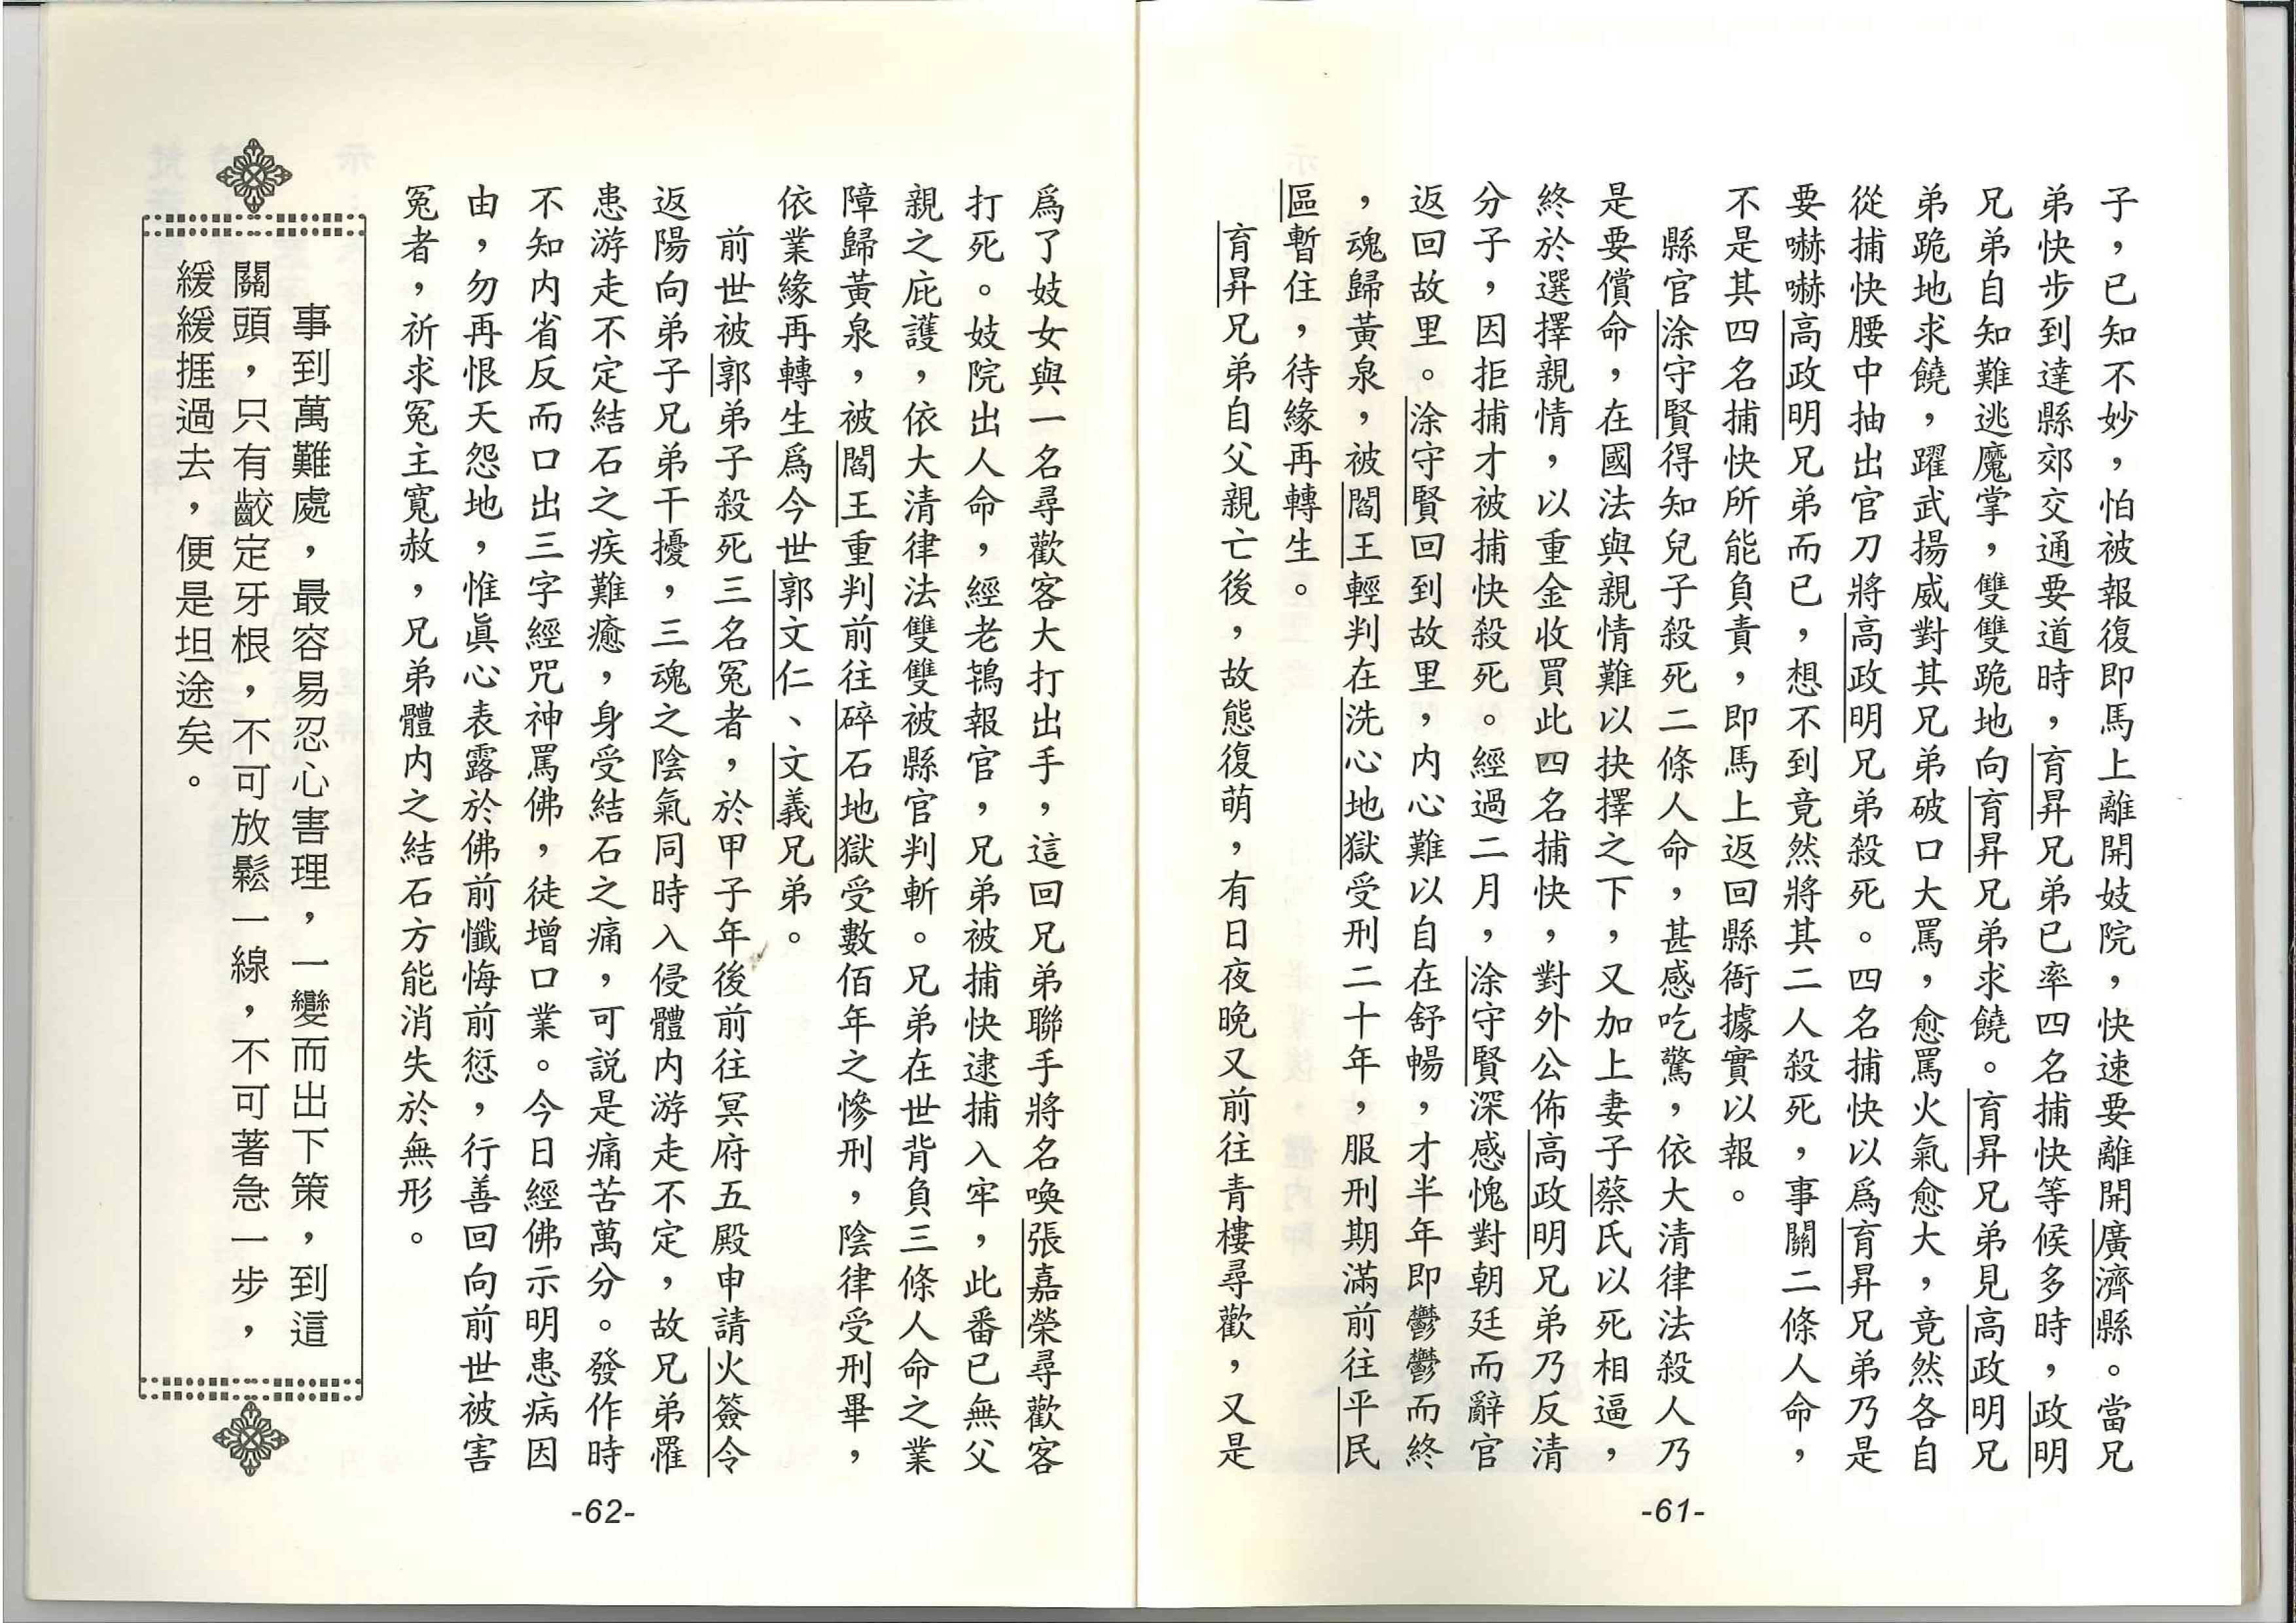 子，已知不妙，怕被報復即馬上離開妓院，快速要離開廣濟縣。當兄
弟快步到達縣郊交通要道時，育昇兄弟已率四名捕快等候多時，政明
兄弟自知難逃魔掌，雙雙跪地向育昇兄弟求饒。育昇兄弟見高政明兄
弟跪地求饒，躍武揚威對其兄弟破口大罵，愈罵火氣愈大，竟然各自
從捕快腰中抽出官刀將高政明兄弟殺死。四名捕快以爲育昇兄弟乃是
要嚇嚇高政明兄弟而已，想不到竟然將其二人殺死，事關二條人命，
不是其四名捕快所能負責，即馬上返回縣衙據實以報。
縣官涂守賢得知兒子殺死二條人命，甚感吃驚，依大清律法殺人乃
是要償命，在國法與親情難以抉擇之下，又加上妻子蔡氏以死相逼，
終於選擇親情，以重金收買此四名捕快，對外公佈高政明兄弟乃反清
分子，因拒捕才被捕快殺死。經過二月，涂守賢深感愧對朝廷而辭官
返回故里。涂守賢回到故里，內心難以自在舒暢，才半年即鬱鬱而終
，魂歸黃泉，被閻王輕判在洗心地獄受刑二十年，服刑期滿前往平民
區暫住，待緣再轉生。
育昇兄弟自父親亡後，故態復萌，有日夜晚又前往青樓尋歡，又是
-61-
爲了妓女與一名尋歡客大打出手，這回兄弟聯手將名喚張嘉榮尋歡客
打死。妓院出人命，經老鴇報官，兄弟被捕快逮捕入牢，此番已無父
親之庇護，依大清律法雙雙被縣官判斬。兄弟在世背負三條人命之業
障歸黃泉，被閻王重判前往碎石地獄受數佰年之慘刑，陰律受刑畢，
依業緣再轉生爲今世郭文仁、文義兄弟。
前世被郭弟子殺死三名冤者，於甲子年後前往冥府五殿申請火簽令
返陽向弟子兄弟干擾，三魂之陰氣同時入侵體內游走不定，故兄弟罹
患游走不定結石之疾難癒，身受結石之痛，可説是痛苦萬分。發作時
不知內省反而口出三字經咒神罵佛，徒增口業。今日經佛示明患病因
由，勿再恨天怨地，惟眞心表露於佛前懺悔前愆，行善回向前世被害
冤者，祈求冤主寬赦，兄弟體內之結石方能消失於無形。
事到萬難處，最容易忍心害理，一變而出下策，到這
關頭，只有齩定牙根，不可放鬆一線，不可著急一步，
緩緩捱過去，便是坦途矣。
-62-